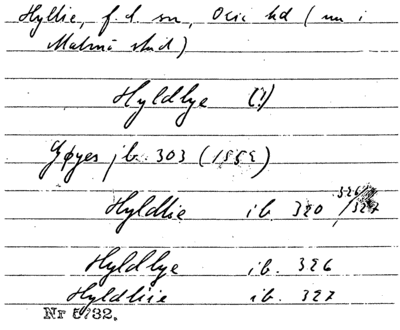 Hyllie, f.d. sn, Oxie hd (nu i
Malmö stad)
Hyldlye (!)
Gøyes jb. 303 (1559)
Hyldlie ib. 320
Hyldlye ib. 326
Hyldliie ib. 327
Nr 5732.